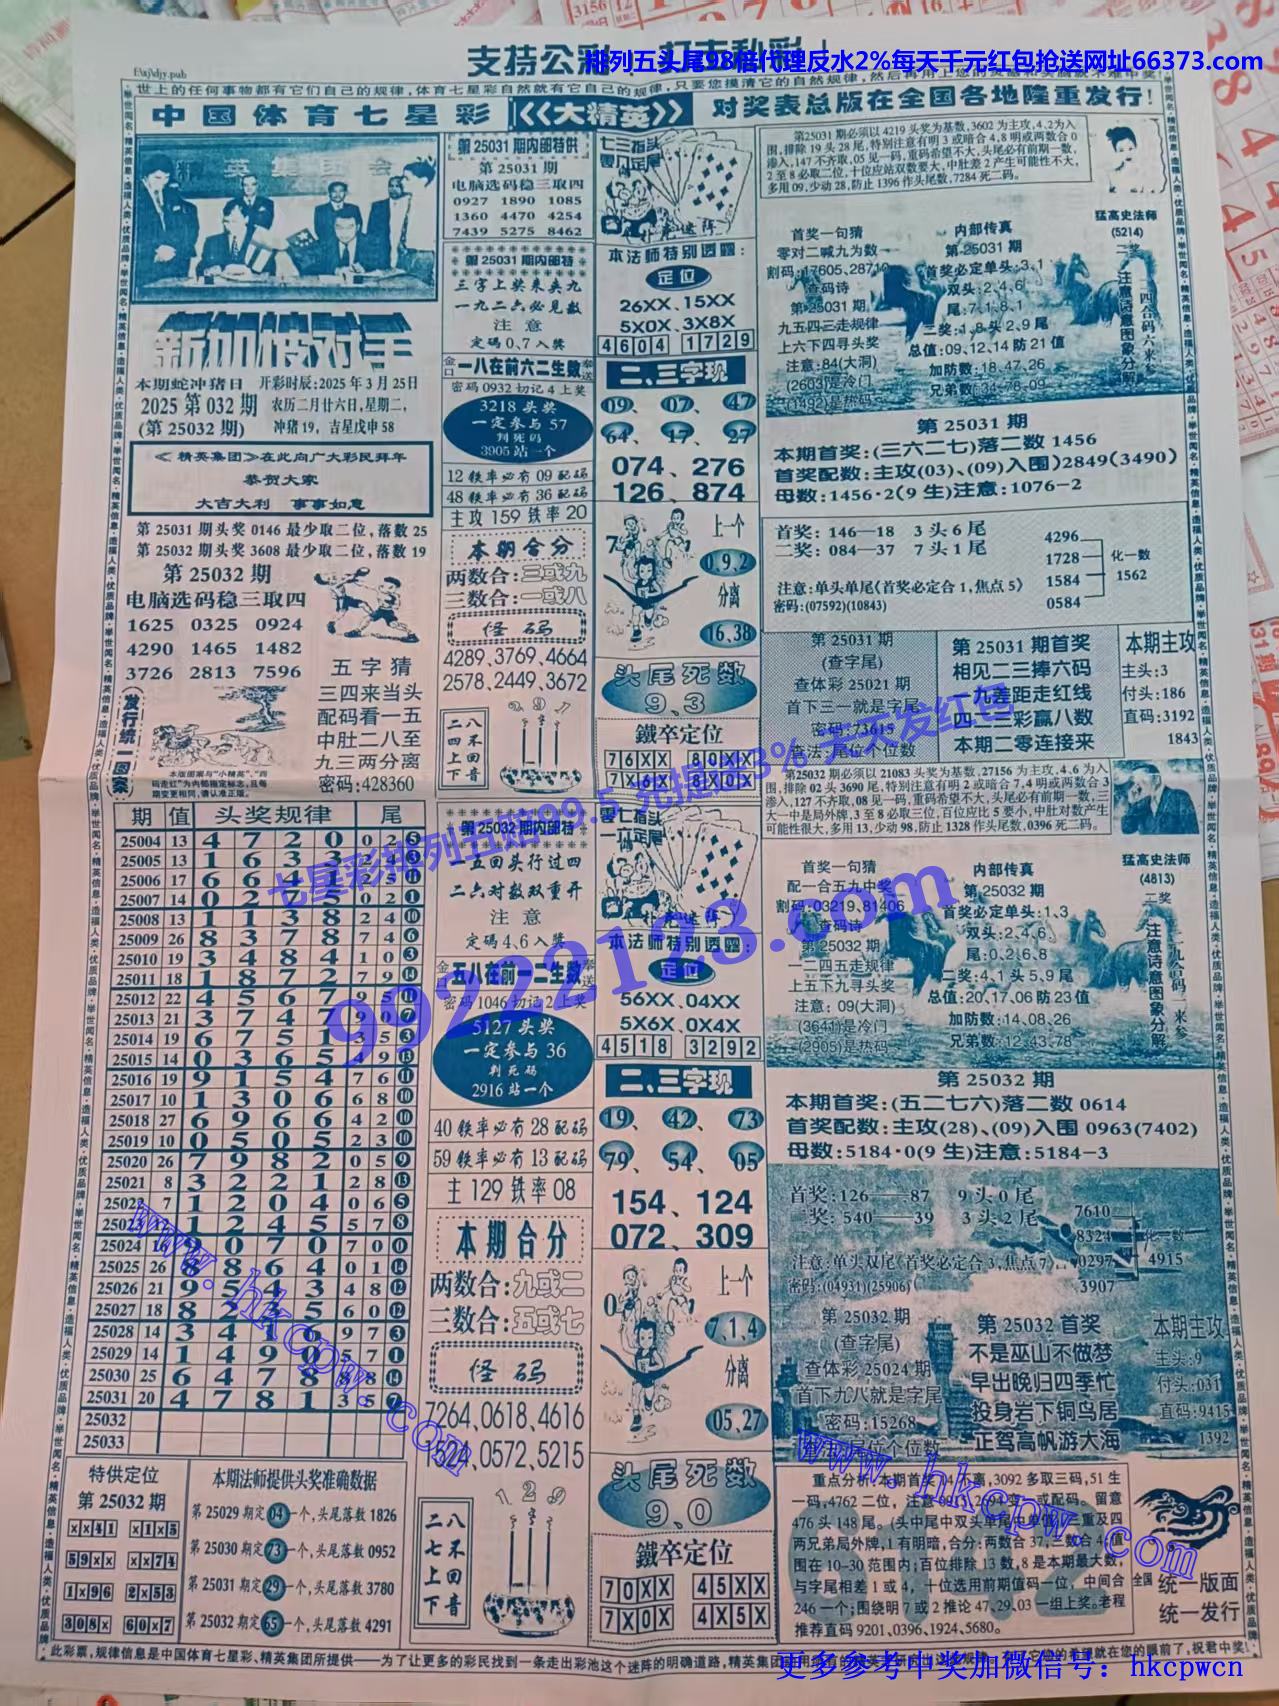 支持公彩
排列五头尾98倍代理反水2%每天千元红包抢送网址66373.com
f:\xj\djy.pub
世上的任何事物都有它们自己的规律,体育七星彩自然就有它自己的规律,只要您摸清它的自然规律,
中国体育七星彩《大精英》对奖表总版在全国各地隆重发行!
新加坡对手
本期蛇冲猪日 开彩时辰:2025年3月25日
2025第032期 农历二月廿六日,星期二,
(第25032期) 冲猪19,吉星戊申58
《精英集团》在此向广大彩民拜年
恭贺大家
大吉大利 事事如意
第25031期头奖0146最少取二位,落数25
第25032期头奖3608最少取二位,落数19
第25032期
电脑选码稳三取四
1625 0325 0924
4290 1465 1482
3726 2813 7596
发行统一图案
五字猜
三四来当头
配码看一五
中肚二八至
九三两分离
密码:428360
第25031期内部特供
第25031期
电脑选码稳三取四
0927 1890 1085
1360 4470 4254
7439 5275 8462
第25031期内部特
三字上奖来夹九
一九二六必见数
注意
定码0.7入奖
金口 一八在前六二生数 奉送
密码0932切记4上奖
3218头奖
一定参与57
判死码
3905站一个
12铁率必有09配码
48铁率必有36配码
主攻159铁率20
本期合分
两数合:三或九
三数合:一或八
怪码
4289、3769、4664
2578、2449、3672
二四上下
八不回音
七三指头
零八定尾
扑克迷阵
本法师特别透露:
定位
26XX、15XX
5X0X、3X8X
4604 1729
二、三字现
09、07、47
64、17、27
074、276
126、874
上一个
0,9,2
分离
16,38
头尾死数
9、3
鐵卒定位
76XX 80XX
7X6X 8X0X
第25031期必须以4219头奖为基数,3602为主攻,4.2为入
围,排除19头28尾,特别注意有明3或暗合4,8明或两数合0
渗入,147不齐取,05见一码,重码希望不大,头尾必有前期一数,
2至8必取二位,十位应站双数要大,中肚差2产生可能性不大,
多用09,少动28,防止1396作头尾数,7284死二码。
首奖一句猜
零对二喊九为数
割码:17605、28710
查码诗
第25031期
九五四三走规律
上六下四寻头奖
注意:84(大洞)
(2603)是冷门
(1492)是热码
内部传真
第25031期
首奖必定单头:3、1
双头:2、4、6
尾:7、1、8、1
二奖:1、8头2、9尾
总值:09、12、14防21值
加防数:18、47、26
兄弟数:34、78、09
猛高史法师
(5214)
二奖
二四合码六来参
注意诗意图象分解
第25031期
本期首奖:(三六二七)落二数1456
首奖配数:主攻(03)、(09)入围)2849(3490)
母数:1456·2(9生)注意:1076-2
首奖:146—18 3头6尾
二奖:084—37 7头1尾
注意:单头单尾(首奖必定合1,焦点5)
密码:(07592)(10843)
4296
1728
1584
0584
化一数
1562
第25031期
(查字尾)
查体彩25021期
首下三一就是字尾
密码:73615
查法:尾位个位数
第25031期首奖
相见二三捧六码
一九差距走红线
四一三彩赢八数
本期二零连接来
本期主攻
主头:3
付头:186
直码:3192
1843
七星彩排列五赔99.5
99222123.com
期 值 头奖规律 尾
25004 13 4 7 2 0 0 2 5
25005 13 1 6 3 3
25006 17 6 6 4 1
25007 14 0 2 7 5 0 2 1
25008 13 1 1 3 8 2 4 10
25009 26 8 3 7 8 7 4 6
25010 19 3 4 8 4 1 0 3
25011 18 1 8 7 2 7 9 14
25012 22 4 5 6 7 9 5 11
25013 21 3 7 4 7 9 0 7
25014 19 6 7 5 1 3 5 3
25015 14 0 3 6 5 4 9 13
25016 19 9 1 5 4 7 6 11
25017 10 1 3 0 6 6 8 10
25018 27 6 9 6 6 4 2 10
25019 10 0 5 0 5 2 3 10
25020 26 7 9 8 2 0 5 9
25021 8 3 2 2 1 2 8 13
25022 7 1 2 0 4 0 6 5
25023 1 2 4 5 5 7 8
25024 0 7 0 7 0 0
25025 26 8 8 6 4 0 1 14
25026 21 9 5 4 3 4 8 12
25027 18 8 2 3 5 6 0 12
25028 14 3 4 1 6 9 7 3
25029 14 1 4 9 0 5 7 1
25030 25 6 4 7 8 8 8 14
25031 20 4 7 8 1 3 5 7
25032
25033
第25032期内部特
一五回头行过四
二六对数双重开
注意
定码4.6入奖
金口 五八在前一二生数 奉送
密码1046切记2上奖
5127头奖
一定参与36
判死码
2916站一个
40铁率必有28配码
59铁率必有13配码
主129铁率08
本期合分
两数合:九或二
三数合:五或七
怪码
7264、0618、4616
1524、0572、5215
二七上下
八不回音
零七指头
一六定尾
扑克迷阵
本法师特别透露:
定位
56XX、04XX
5X6X、0X4X
4518 3292
二、三字现
19、42、73
79、54、05
154、124
072、309
上一个
7,1,4
分离
05,27
头尾死数
9、0
鐵卒定位
70XX 45XX
7X0X 4X5X
第25032期必须以21083头奖为基数,27156为主攻,4.6为入
围,排除02头3690尾,特别注意有明2或暗合7,4明或两数合3
渗入,127不齐取,08见一码,重码希望不大,头尾必有前期一数,
大一中是局外牌,3至8必取三位,百位应比5要小,中肚对数产生
可能性很大,多用13,少动98,防止1328作头尾数,0396死二码。
首奖一句猜
配一合五九中奖
割码:03219、81406
查码诗
第25032期
一二四五走规律
上五下九寻头奖
注意:09(大洞)
(3641)是冷门
(2905)是热码
内部传真
第25032期
首奖必定单头:1、3
双头:2、4、6
尾:0、2、6、8
二奖:4、1头5、9尾
总值:20、17、06防23值
加防数:14、08、26
兄弟数:12、43、78
猛高史法师
(4813)
二奖
一九合码二来参
注意诗意图象分解
第25032期
本期首奖:(五二七六)落二数0614
首奖配数:主攻(28)、(09)入围0963(7402)
母数:5184·0(9生)注意:5184-3
首奖:126——87 9头0尾
二奖:540——39 3头2尾
注意:单头双尾(首奖必定合3,焦点7)
密码:(04931)(25906)
7610
8324
0297
3907
化一数
4915
第25032期
(查字尾)
查体彩25024期
首下九八就是字尾
密码:15268
第25032首奖
不是巫山不做梦
早出晚归四季忙
投身岩下铜鸟居
正驾高帆游大海
本期主攻
主头:9
付头:031
直码:9415
1392
特供定位
第25032期
xx41 x1x5
59xx xx74
1x96 2x53
308x 60x7
本期法师提供头奖准确数据
第25029期定04一个,头尾落数1826
第25030期定73一个,头尾落数0952
第25031期定29一个,头尾落数3780
第25032期定65一个,头尾落数4291
重点分析:本期首奖04不离,3092多取三码,51生
一码,4762二位,
476头148尾。(头中尾中双头单尾中单值)三重及四
两兄弟局外牌,1有明暗,合分:两数合37,三数合4;值
围在10-30范围内;百位排除13数,8是本期最大数,
与字尾相差1或4,十位选用前期值码一位,中间合
246一个;围绕明7或2推论47、29、03一组上奖。老程
推荐直码9201、0396、1924、5680。
全国
统一版面
统一发行
www.hkcpw.com
www.hkcpw.com
此彩票,规律信息是中国体育七星彩、精英集团所提供——为了让更多的彩民找到一条走出彩池这个迷阵的明确道路,
更多参考中奖加微信号: hkcpwcn